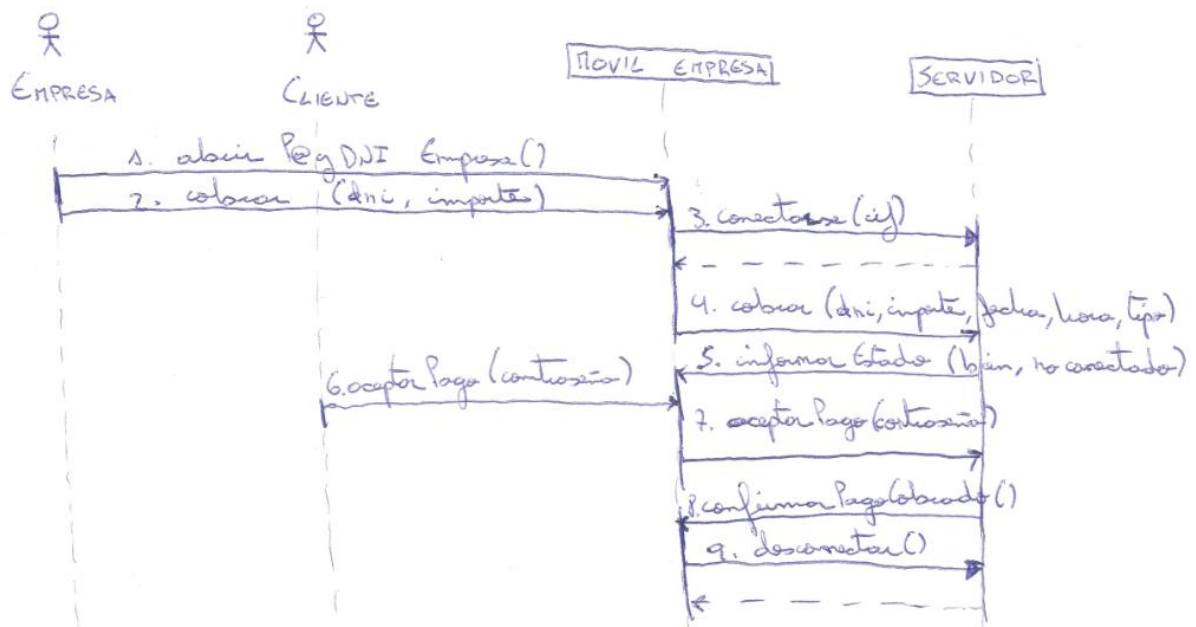 EMPRESA
CLIENTE
MOVIL EMPRESA
SERVIDOR
1. abrir P@gDNI Empresa()
2. cobrar (dni, importe)
3. conectarse (cif)
4. cobrar (dni, importe, fecha, hora, tipo)
5. informar Estado (bien, no conectado)
6. aceptar Pago (contraseña)
7. aceptar Pago (contraseña)
8. confirmar Pago Cobrado ()
9. desconectar ()